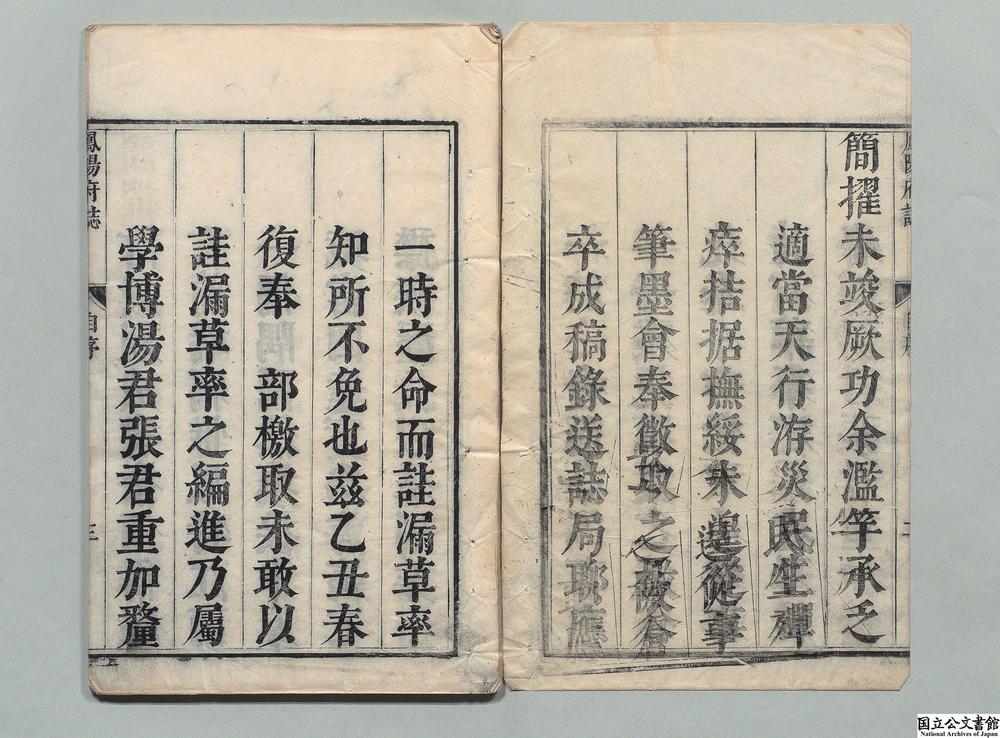 鳳陽府誌
自序
二
簡擢未竣厥功余濫竽承乏
適當天行洊災民生殫
瘁拮据撫綏未遑從事
筆墨會奉徵取之檄倉
卒成稿錄送誌局聊應
一時之命而詿漏草率
知所不免也茲乙丑春
復奉 部檄取未敢以
詿漏草率之編進乃屬
學博湯君張君重加釐
鳳陽府誌
自序
三
国立公文書館
National Archives of Japan